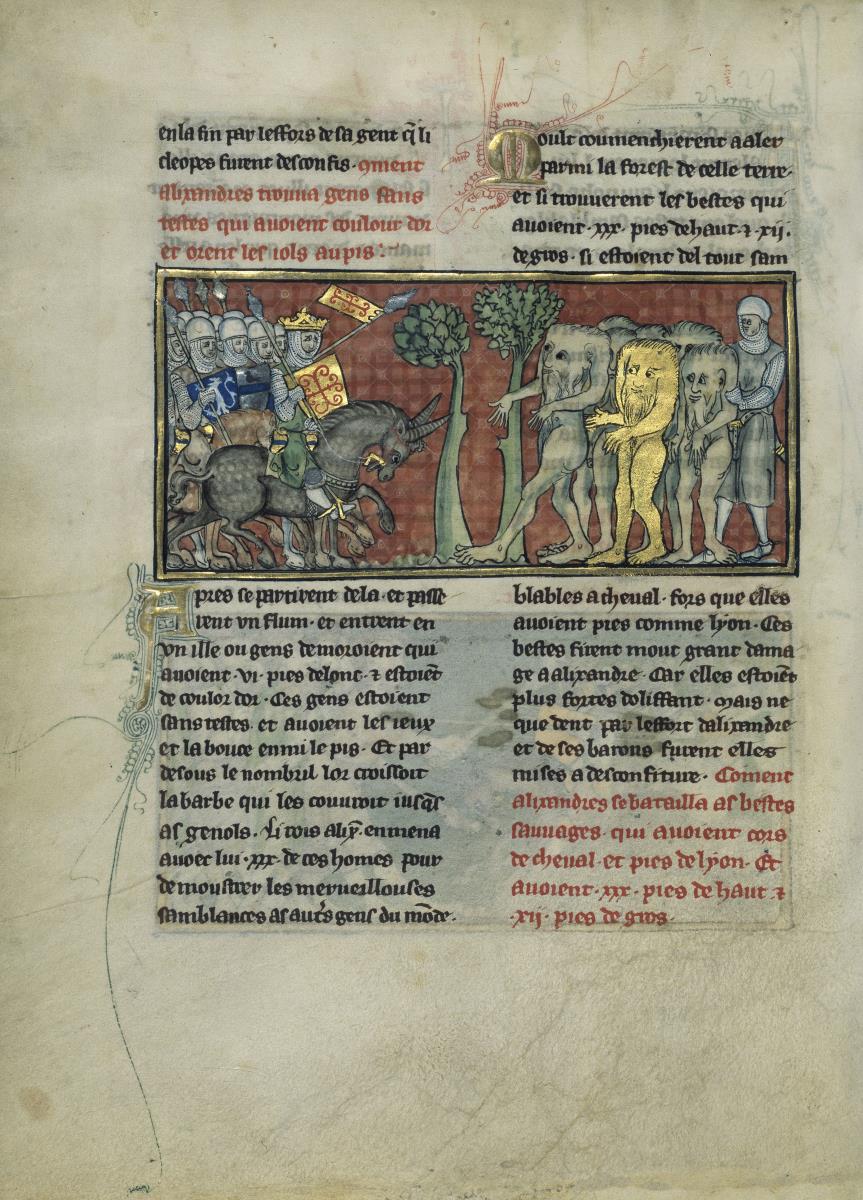 en la fin par leffors de sa gent q̃ li
cleopes furent desconfis. Qment
alixandres trouua gens sans
testes qui auoient coulour dor
et orent les iols au pis
Apres se partirent de la. et passe
rent vn flum. et entrent en
vn ille ou gens demoroient qui
auoient .vi. pies de lonc. ⁊ estoiẽt
de coulor dor. Ces gens estoient
sans testes. et auoient les ieux
et la bouce enmi le pis. Et par
desous le nombril lor croissoit
la barbe qui les couuroit iusq̃s
as genols. Li rois alix̃. enmena
auoec lui .xxx. de ces homes pour
demoustrer les merueillouses
samblances as autᷤs gens du mõde.
Moult coumenchierent a aler
parmi la forest de celle terre.
et si trouuerent les bestes qui
auoient .xxx. pies de haut. ⁊ .xij.
de gros. si estoient del tout sam
blables a cheual. fors que elles
auoient pies comme lyon. Ces
bestes firent mout grant dama
ge a alixandre. Car elles estoiẽt
plus fortes doliffant. mais ne
que dent par leffort dalixandre
et de ses barons furent elles
mises a desconfiture. Coment
alixandres se batailla as bestes
sauuages. qui auoient cors
de cheual. et pies de lyon. Et
auoient .xxx. pies de haut ⁊
.xij. pies de gros.